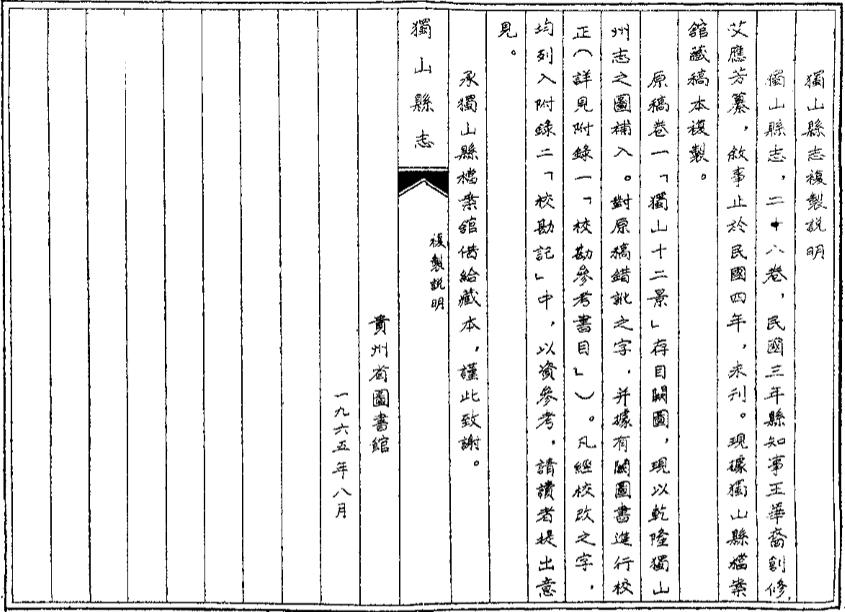 獨山縣志複製説明
獨山縣志，二十八卷，民國三年縣知事王華裔創修，
艾應芳纂，敘事止於民國四年，未刊。現據獨山縣檔案
館藏稿本複製。
原稿卷一「獨山十二景」存目闕圖，現以乾隆獨山
州志之圖補入。對原稿錯訛之字，并據有關圖書進行校
正（詳見附錄一「校勘參考書目」）。凡經校改之字，
均列入附錄二「校勘記」中，以資參考。請讀者提出意
見。
承獨山縣檔案館借給藏本，謹此致謝。
獨山縣志
複製説明
貴州省圖書館
一九六五年八月